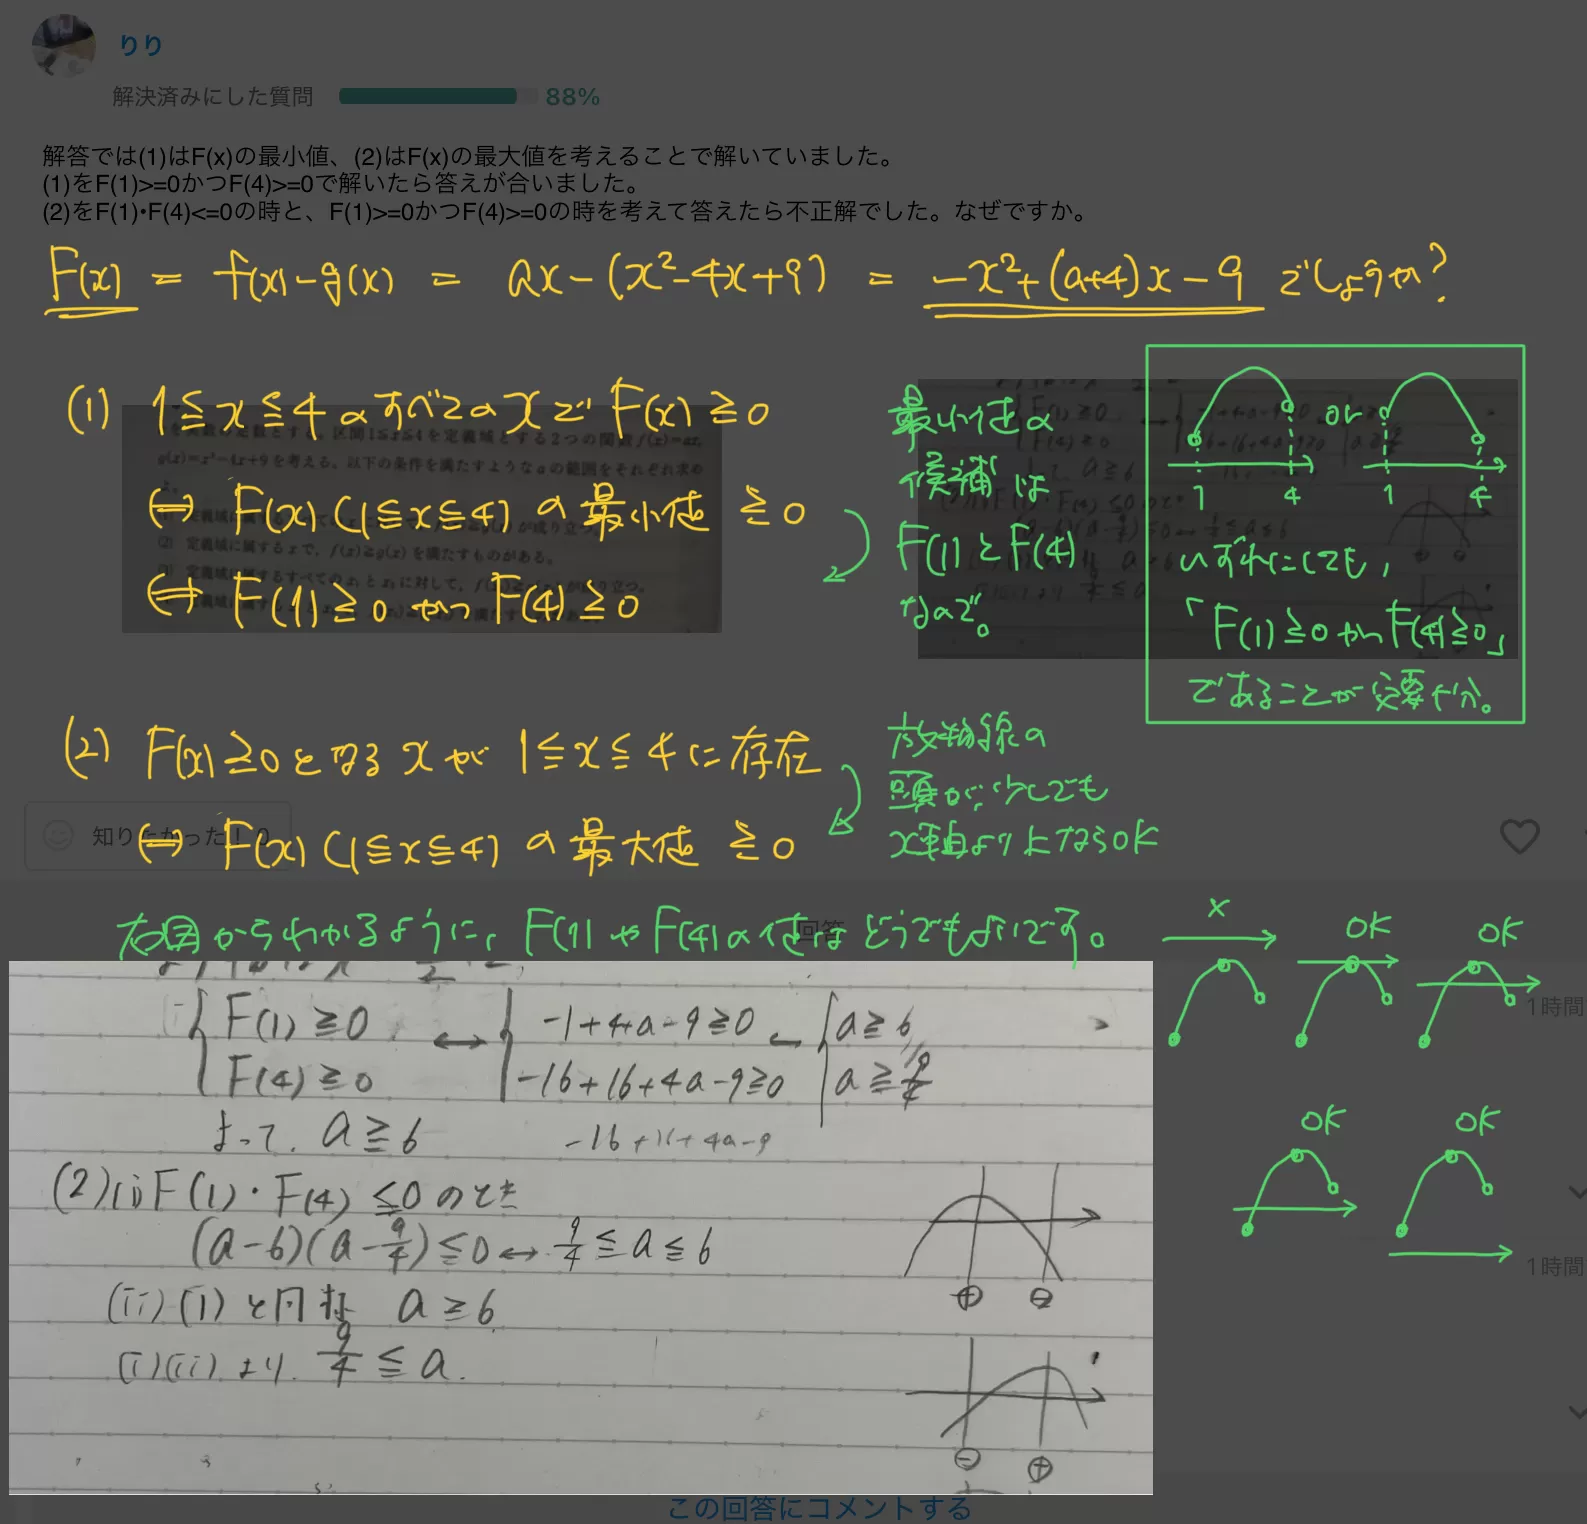 りり
解決済みにした質問 88%
解答では(1)はF(x)の最小値、(2)はF(x)の最大値を考えることで解いていました。
(1)をF(1)>=0かつF(4)>=0で解いたら答えが合いました。
(2)をF(1)・F(4)<=0の時と、F(1)>=0かつF(4)>=0の時を考えて答えたら不正解でした。なぜですか。
F(x) = f(x)-g(x) = ax-(x²-4x+9) = -x²+(a+4)x-9 でしょうか?
(1) 1≦x≦4のすべてのxでF(x)≧0
⇔ F(x)(1≦x≦4)の最小値≧0
⇔ F(1)≧0かつF(4)≧0
最小値の
候補は
F(1)とF(4)
なので。
or
1 4 1 4
いずれにしても,
「F(1)≧0かつF(4)≧0」
であることが必要十分。
g(x)=x²-4x+9を考える。以下の条件を満たすようなaの範囲をそれぞれ求め
(2) 定義域に属するxで、f(x)≧g(x)を満たすものがある。
(2) F(x)≧0となるxが1≦x≦4に存在
⇔ F(x)(1≦x≦4)の最大値≧0
放物線の
頭が少しでも
x軸より上ならOK
知りたかった! 0
回答
右図からわかるように、F(1)やF(4)の値はどうでもよいです。
x OK OK
OK OK
1時間
1時間
F(1)≧0 ↔ -1+4+a-9≧0 a≧6
F(4)≧0 -16+16+4a-9≧0 a≧9/4
よって、a≧6 -16+16+4a-9
(2)(i)F(1)・F(4)≦0のとき
(a-6)(a-9/4)≦0↔9/4≦a≦6
⊕ ⊖
(ii)(1)と同様 a≧6
(i)(ii)より、9/4≦a.
⊖ ⊕
この回答にコメントする